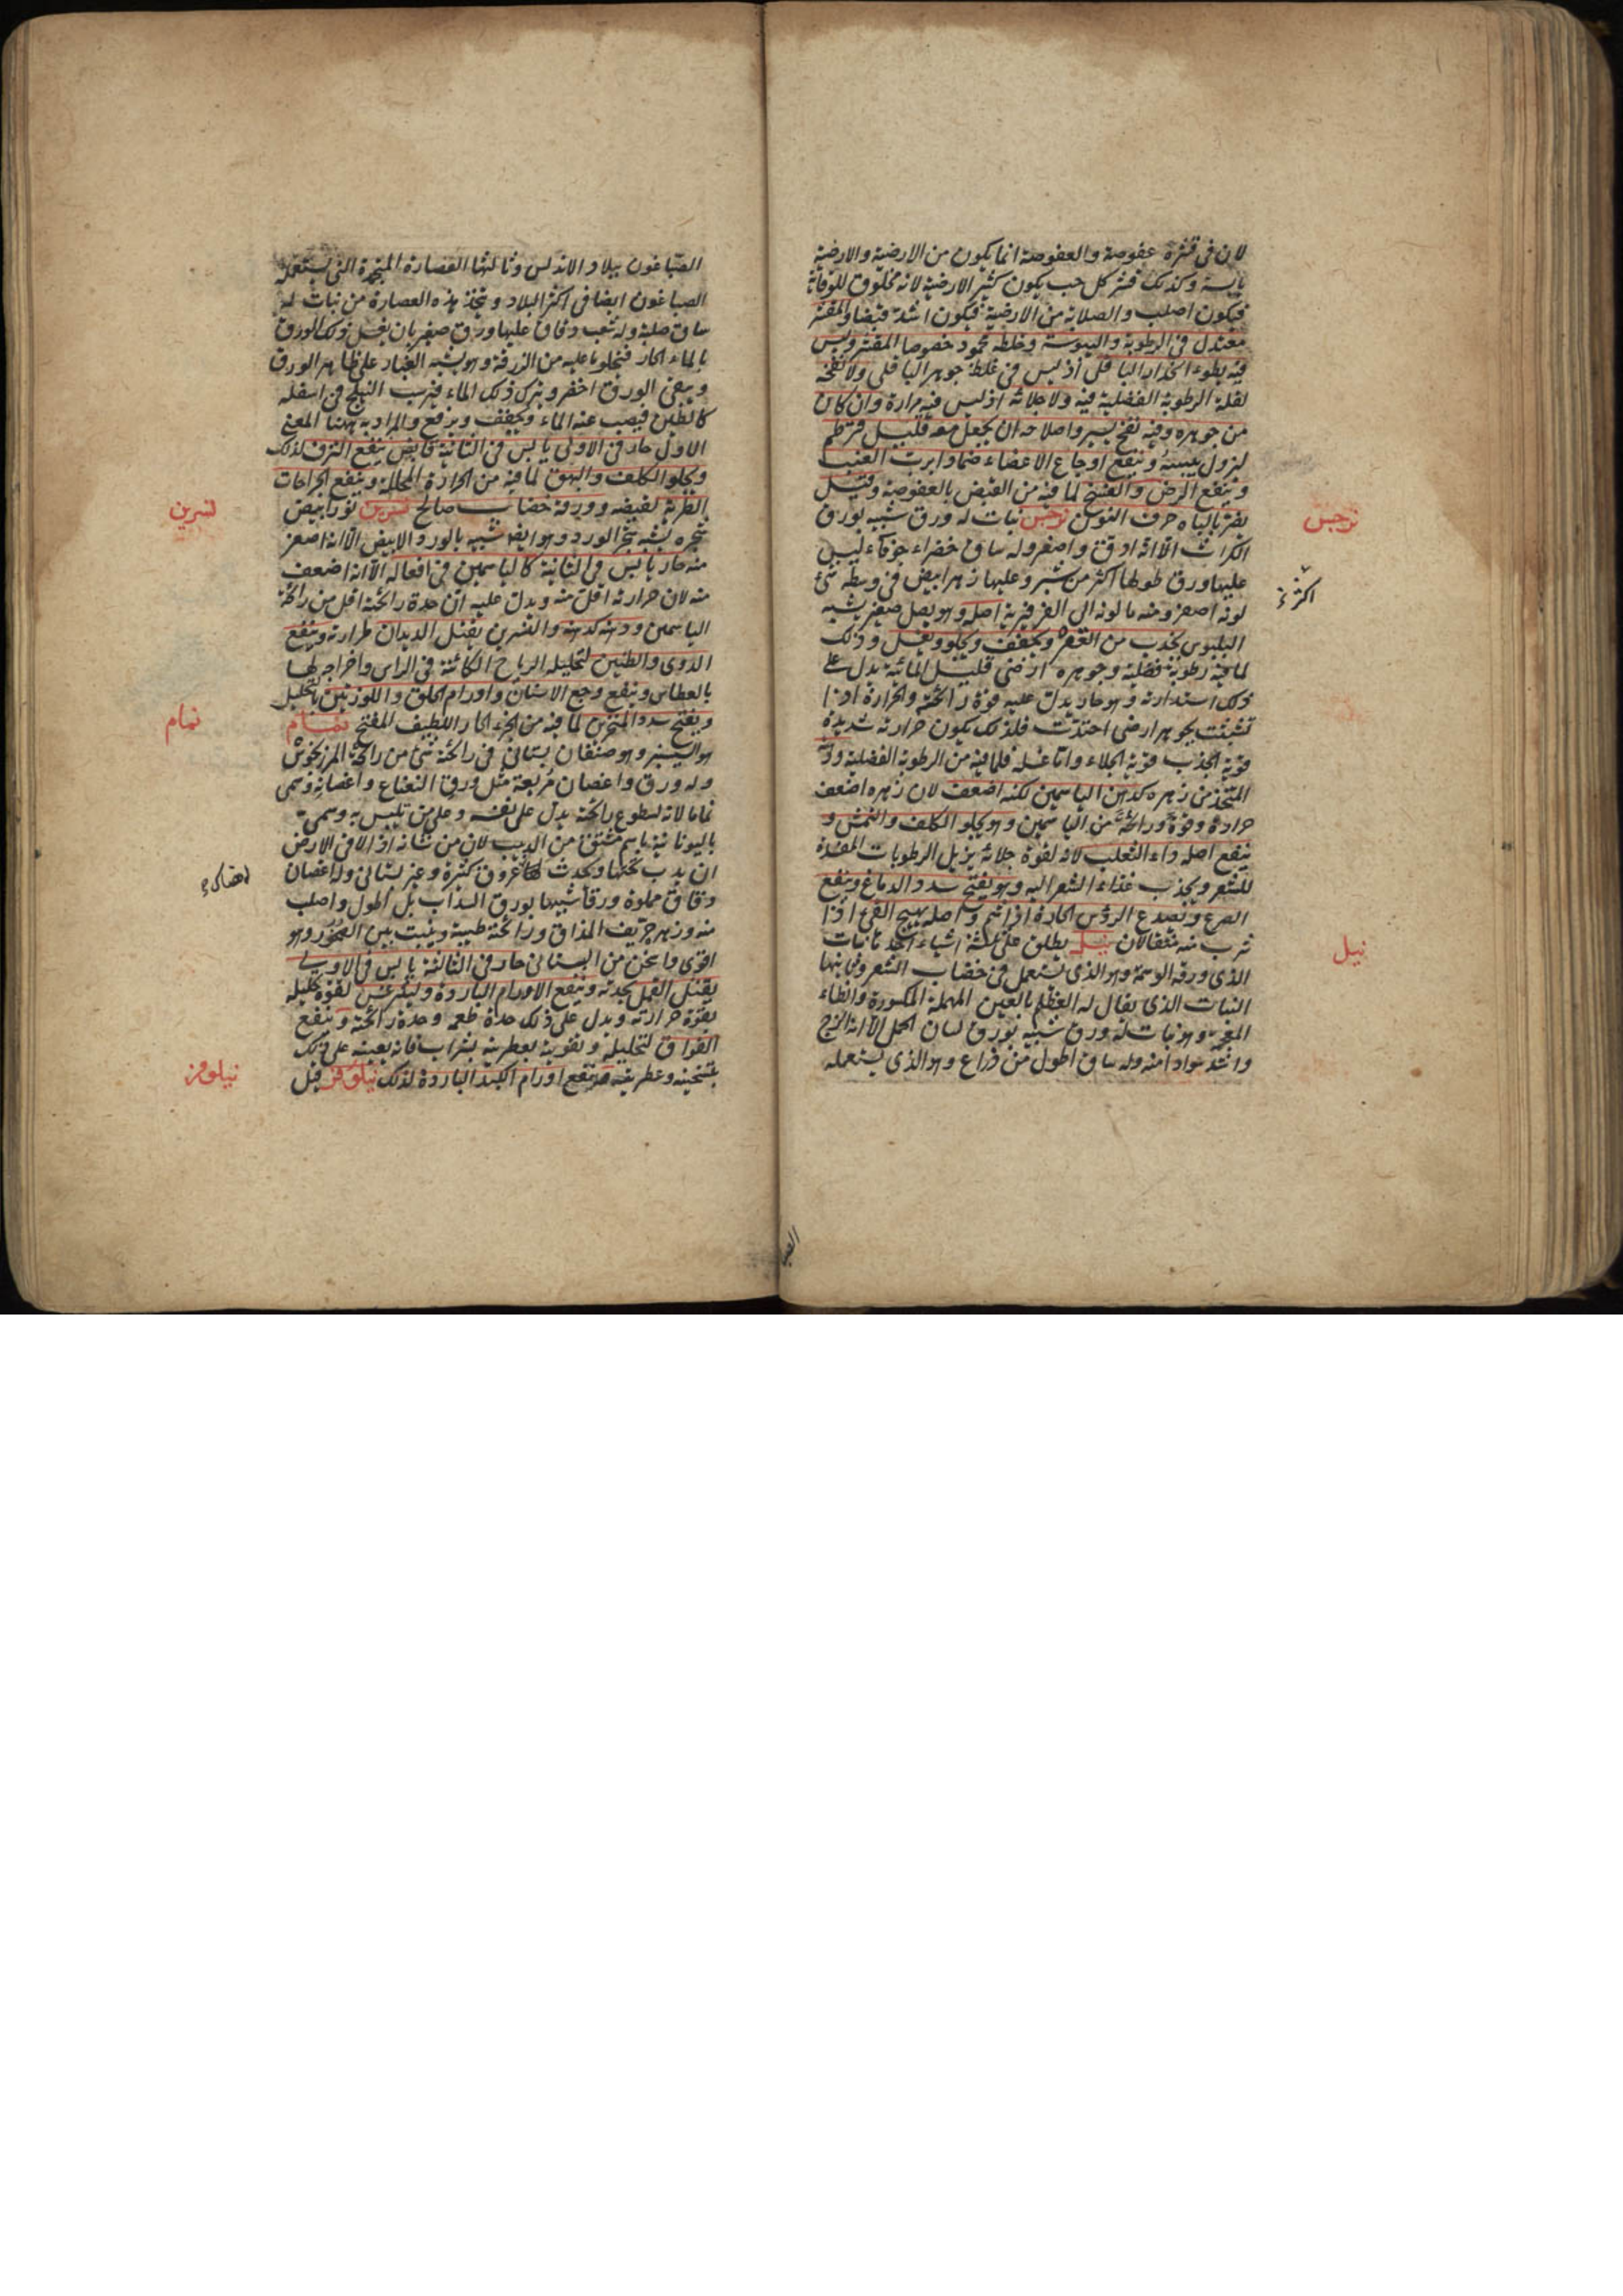 لان فى قشره عفوصة والعفوصة انما يكون من الارضية والارضية
يابسة وكذلك قشر كل حب يكون كثير الارضية لانه مخلوق للوقاية
فيكون اصلب والصلابة من الارضية فيكون اشد قبضا والمقشر
معتدل فى الرطوبة واليبوسة وخلطه محمود خصوصا المقشر وليس
فيه بطوء انحدار الباقلى اذ ليس فى غلظ جوهر الباقلى ولا نفخه
لقلة الرطوبة الفضلية فيه ولا جلائه اذ ليس فيه مرارة وان كان
من جوهره وفيه نفخ يسير واصلاحه ان يجعل معه قليل قرطم
ليزول يبسه وينفع اوجاع الاعضاء ضمادا برب العنب
وينفع الرض والفسخ لما فيه من القبض بالعفوصة وقيل
يضر بالباه حرف النون نرجس نبات له ورق شبيه بورق
الكراث الا انه ادق واصغر وله ساق خضراء جوفاء ليس
عليها ورق طولها اكثر من شبر وعليها زهر ابيض فى وسطه شئ
لونه اصفر ومنه ما لونه الى الفرفيرية اصله وهو بصل صغير يشبه
البلبوس يجذب من القعر ويجفف ويجلو ويغسل وذلك
لما فيه رطوبة فضلية وجوهره ارضى قليل المائية يدل على
ذلك استدارته وهو حار يدل عليه قوة رائحته والحرارة اذا
تشبثت بجوهر ارضى احتدت فلذلك يكون حرارته شديدة
قوية الجذب قوية الجلاء واما غسله فلما فيه من الرطوبة الفضلية ودهنه
المتخذ من زهره كدهن الياسمين لكنه اضعف لان زهره اضعف
حرارة وقوة ورائحة من الياسمين وهو يجلو الكلف والنمش و
ينفع اصله داء الثعلب لانه لقوة جلائه يزيل الرطوبات المفسدة
للشعر ويجذب غذاء الشعر اليه وهو يفتح سدد الدماغ وينفع
الصرع ويصدع الرؤس الحارة اذا شم واصله يهيج القئ اذا
شرب منه مثقالان نيل يطلق على ثلثة اشياء احدها نبات
الذى ورقه الوسمة وهو الذى يستعمل فى خضاب الشعر وثانيها
النبات الذى يقال له العظلم بالعين المهملة المكسورة والظاء
المعجمة وهو نبات له ورق شبيه بورق لسان الحمل الا انه الزج
واشد سوادا منه وله ساق اطول من ذراع وهو الذى يستعمله
نرجس
اكثر
نيل
الصباغون ببلاد الاندلس وثالثها العصارة المتجمدة التى يستعمله
الصباغون ايضا فى اكثر البلاد ويتخذ هذه العصارة من نبات له
ساق صلبة وله شعب دقاق عليها ورق صغير بان يغسل ذلك الورق
بالماء الحار فينجلو ما عليه من الزرقة وهو يشبه الغبار على ظاهر الورق
ويبقى الورق اخضر ويترك ذلك الماء فيرسب النيلج فى اسفله
كالطين فيصب عنه الماء ويجفف ويرفع والمراد به ههنا المعنى
الاول حار فى الاولى يابس فى الثانية قابض ينفع النزف لذلك
ويجلو الكلف والبهق لما فيه من الحرارة المحللة وينفع الجراحات
الطرية لقبضه وورقه خضاب صالح نسرين نور ابيض
شجره يشبه شجر الورد وهو ايضا شبيه بالورد الابيض الا انه اصغر
منه حار يابس فى الثانية كالياسمين فى افعاله الا انه اضعف
منه لان حرارته اقل منه ويدل عليه ان حدة رائحته اقل من رائحة
الياسمين ودهنه كدهنه والنسرين يقتل الديدان لمرارته وينفع
الدوى والطنين لتحليله الرياح الكائنة فى الراس واخراجه لها
بالعطاس وينفع وجع الاسنان واورام الحلق واللوزتين بالتحليل
ويفتح سدد المنخرين لما فيه من الجزء الحار اللطيف المفتح نمام
هو السيسنبر وهو صنفان بستانى فى رائحته شئ من رائحة المرزنجوش
وله ورق واغصان مربعة مثل ورق النعناع واغصانه وسمى
نماما لانه لسطوع رائحته يدل على نفسه وعلى من تلبس به وسمى
باليونانية باسم مشتق من الدبيب لان من شانه اذا لاقى الارض
ان يدب تحتها ويحدث لها عروق كثيرة وغير بستانى وله اغصان
دقاق مملوة ورقا شبيها بورق السذاب بل اطول واصلب
منه وزهر حريف المذاق ورائحته طيبة وينبت بين الصخور وهو
اقوى واسخن من البستانى حار فى الثالثة يابس فى الاولى
يقتل القمل بحدته وينفع الاورام الباردة وليثرغس لقوة تحليله
بقوة حرارته ويدل على ذلك حدة طعمه وحدة رائحته وينفع
الفواق لتحليله وتقويته بعطريته بشراب فانه يعينه على ذلك
بتسخينه وعطريته وينفع اورام الكبد الباردة لذلك نيلوفر قيل
نسرين
نمام
نيلوفر